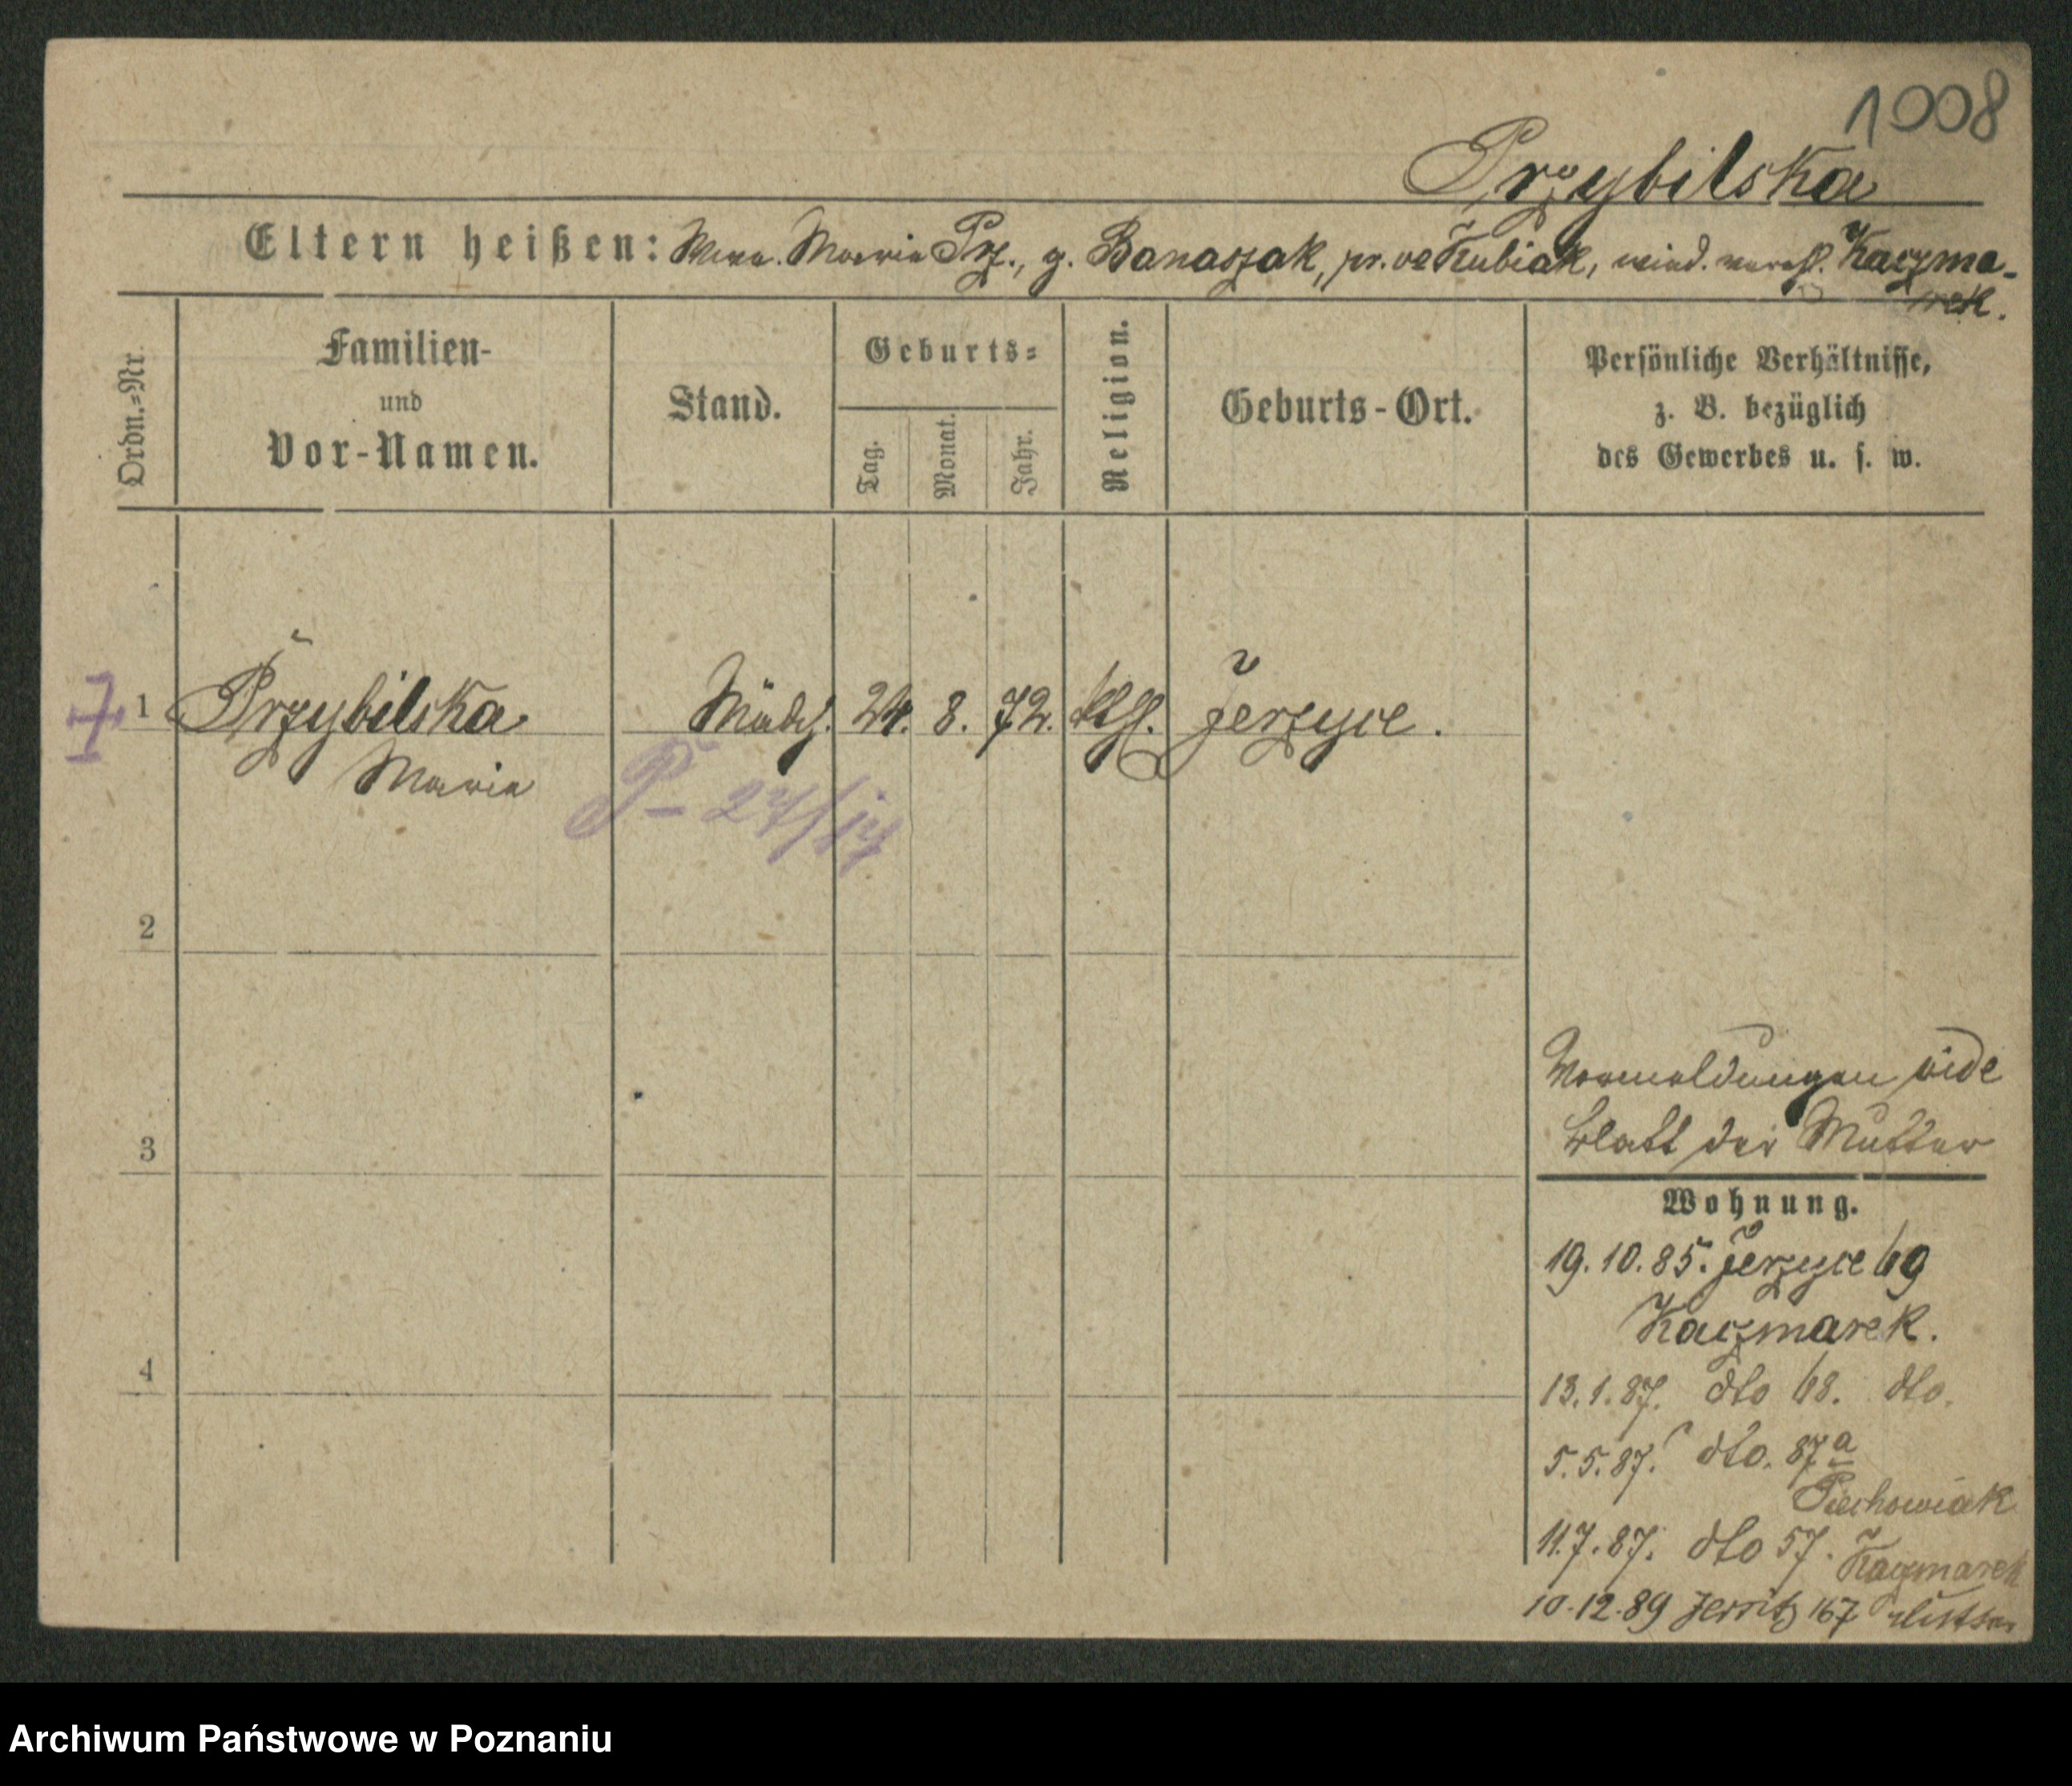 1008
Przybilska
Eltern heißen: Wwe. Maria Prz., g. Banaszak, pr. vo Kubiak, wied. vereh. Kaczma-
rek.
Ordn.-Nr.
Familien-
und
Vor-Namen.
Stand.
Geburts-
Tag.
Monat.
Jahr.
Religion.
Geburts-Ort.
Persönliche Verhältnisse,
z. B. bezüglich
des Gewerbes u. s. w.
1 Przybilska Mädch. 24. 8. 72. kthl. Jerzyce.
Maria
P- 27/17
2
3
4
Vormeldungen vide
Blatt der Mutter
Wohnung.
19.10.85. Jerzyce 69
Kaczmarek.
13.1.87. dto 68. dto.
5.5.87. dto. 87a
Piechowiak
11.7.87. dto 57. Kaczmarek
10.12.89 Jersitz 167 Mutter
Archiwum Państwowe w Poznaniu